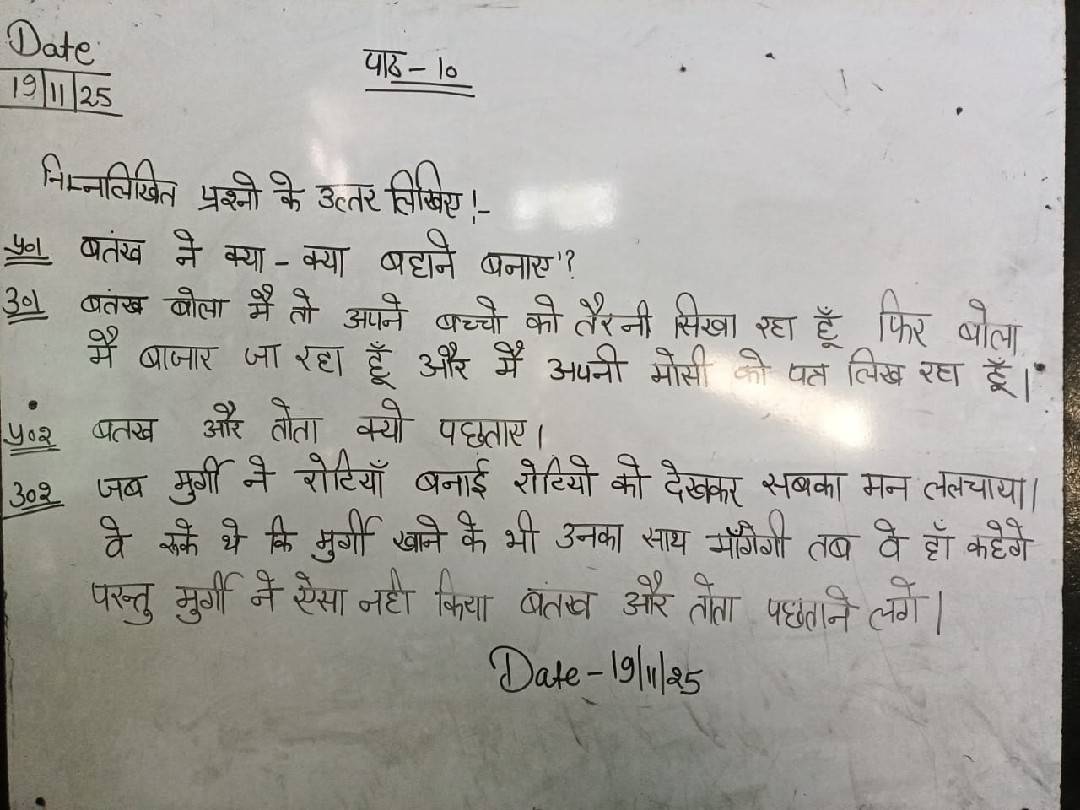 Date
19/11/25
पाठ - १०
निम्नलिखित प्रश्नो के उत्तर लिखिए!-
प्र०१ बतंख ने क्या - क्या बहाने बनाए?
उ०१ बतंख बोला मै तो अपने बच्चो को तैरनी सिखा रहा हूँ फिर बोला
मै बाजार जा रहा हूँ और मै अपनी मोसी को पत्र लिख रहा हूँ।
प्र०२ बतख और तोता क्यो पछताए।
उ०२ जब मुर्गी ने रोटियाँ बनाई रोटियो को देखकर सबका मन ललचाया।
वे रुके थे कि मुर्गी खाने के भी उनका साथ माँगेगी तब वे हाँ कहेगे
परन्तु मुर्गी ने ऐसा नही किया बतंख और तोता पछताने लगे।
Date - 19/11/25